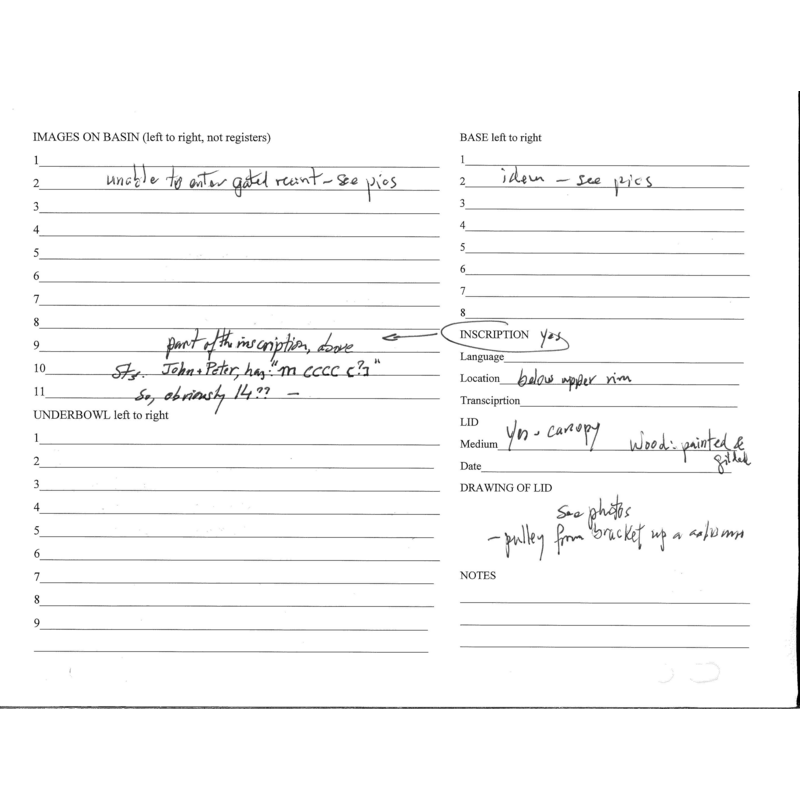 IMAGES ON BASIN (left to right, not registers)
1
2 unable to enter gated – see pics
3
4
5
6
7
8
9 part of the inscription, above
10 Sts. John + Peter, has: "m cccc c?]"
11 So, obviously 14?? –
UNDERBOWL left to right
1
2
3
4
5
6
7
8
9
BASE left to right
1
2 idem – see pics
3
4
5
6
7
8
INSCRIPTION Yes
Language
Location below upper rim
Transciprtion
LID
Yes - canopy
Medium Wood: painted & gilded
Date
DRAWING OF LID
See photos
– pulley from bracket up a column
NOTES